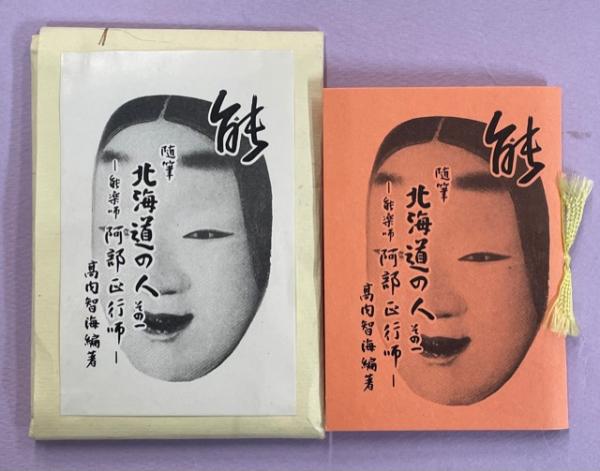 能
随筆
北海道の人 その一
―能楽師 阿部正行師―
高内智海編著
能
随筆
北海道の人 その一
―能楽師 阿部正行師―
高内智海編著